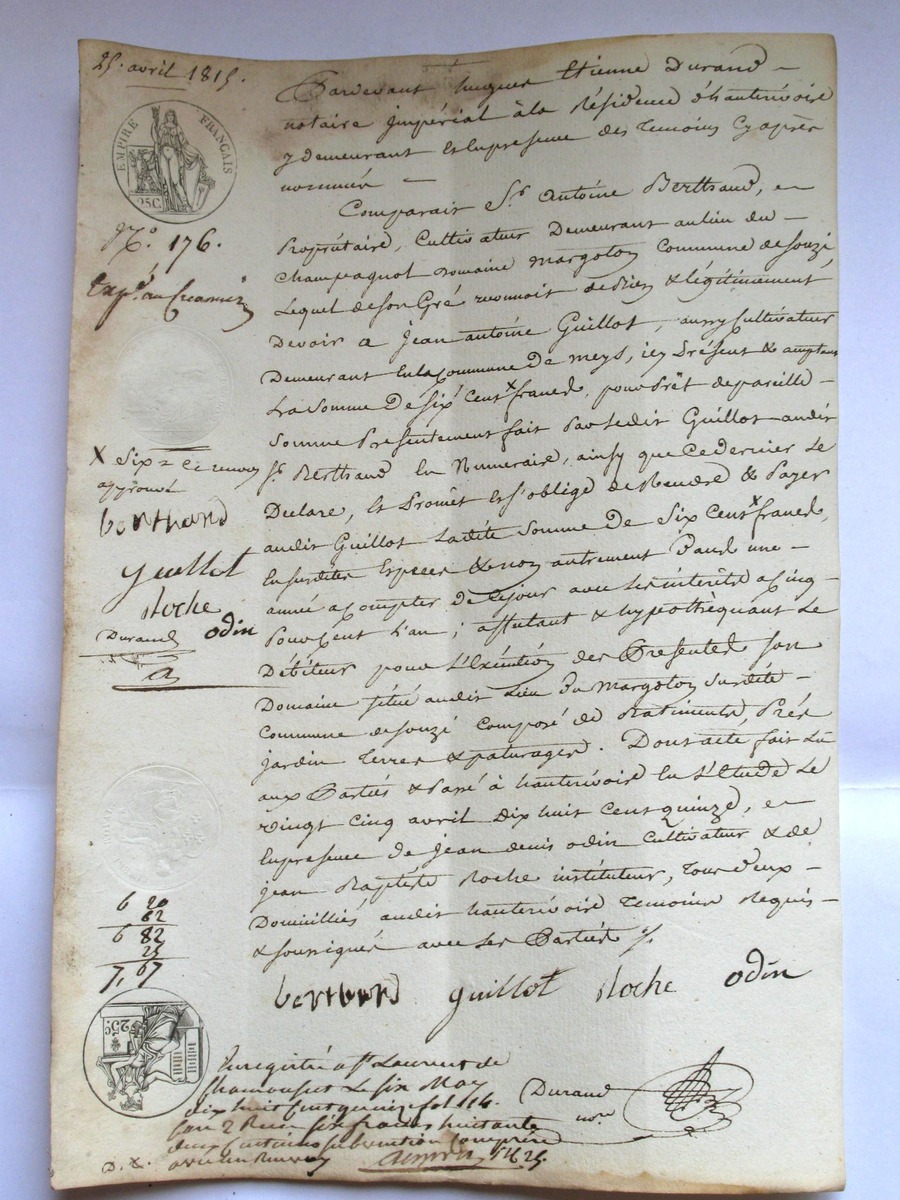 25. avril 1815.
EMPIRE FRANÇAIS
25C
N.º 176.
X Six = ce renvoy
approuvé
berthand
guillot
Roche
Durand odin
Pardevant hugues Etienne Durand
notaire Impérial à la Résidence d'hauterivoire
y demeurant Et en presence des Temoins Cy après
nommés
Comparait Sr. Antoine Berthand,
Propriétaire, Cultivateur Demeurant au lieu du
Champagnot Domaine margoton Commune de souzi
Lequel de son Gré reconnoit de bien & légitimement
Devoir a Jean antoine Guillot, aussy Cultivateur
Demeurant En la Commune De meys, icy Présent & acceptant
La Somme De Six Cent X francs, pour Prêt de pareille
Somme Presentement fait Par Ledit Guillot audit
Sr. Berthand En Numeraire, ainsy que Ce dernier Le
Declare, Et Promet Et s'oblige de Rendre & Payer
audit Guillot Ladite Somme De Six Cent X francs,
En susdites Especes & non autrement Dans une
année a Compter De Ce jour avec Les intérêts a Cinq
Pour Cent L'an; affectant & hypothéquant Le
Débiteur pour L'Exécution des Presentes son
Domaine situé audit Lieu Du Margoton susdite
Commune de souzi Composé de Batiments, Prés
Jardin Terres & paturages. Dont acte fait Lu
aux Parties & Passé à hauterivoire En L'Etude Le
vingt Cinq avril Dix huit Cent quinze,
En presence de jean denis odin Cultivateur & de
jean Baptiste Roche instituteur, Tous deux
Domiciliés audit hauterivoire Temoins Requis
& soussignés avec Les Parties
berthand guillot Roche odin
6 20
62
6 82
25
7,07
25C
Enregistré a St. Laurent de
Chamousset Le six May
dix huit Cent quinze fol 114.
Reçu six francs huitante
deux Centimes subvention Comprise
Durand
nre.